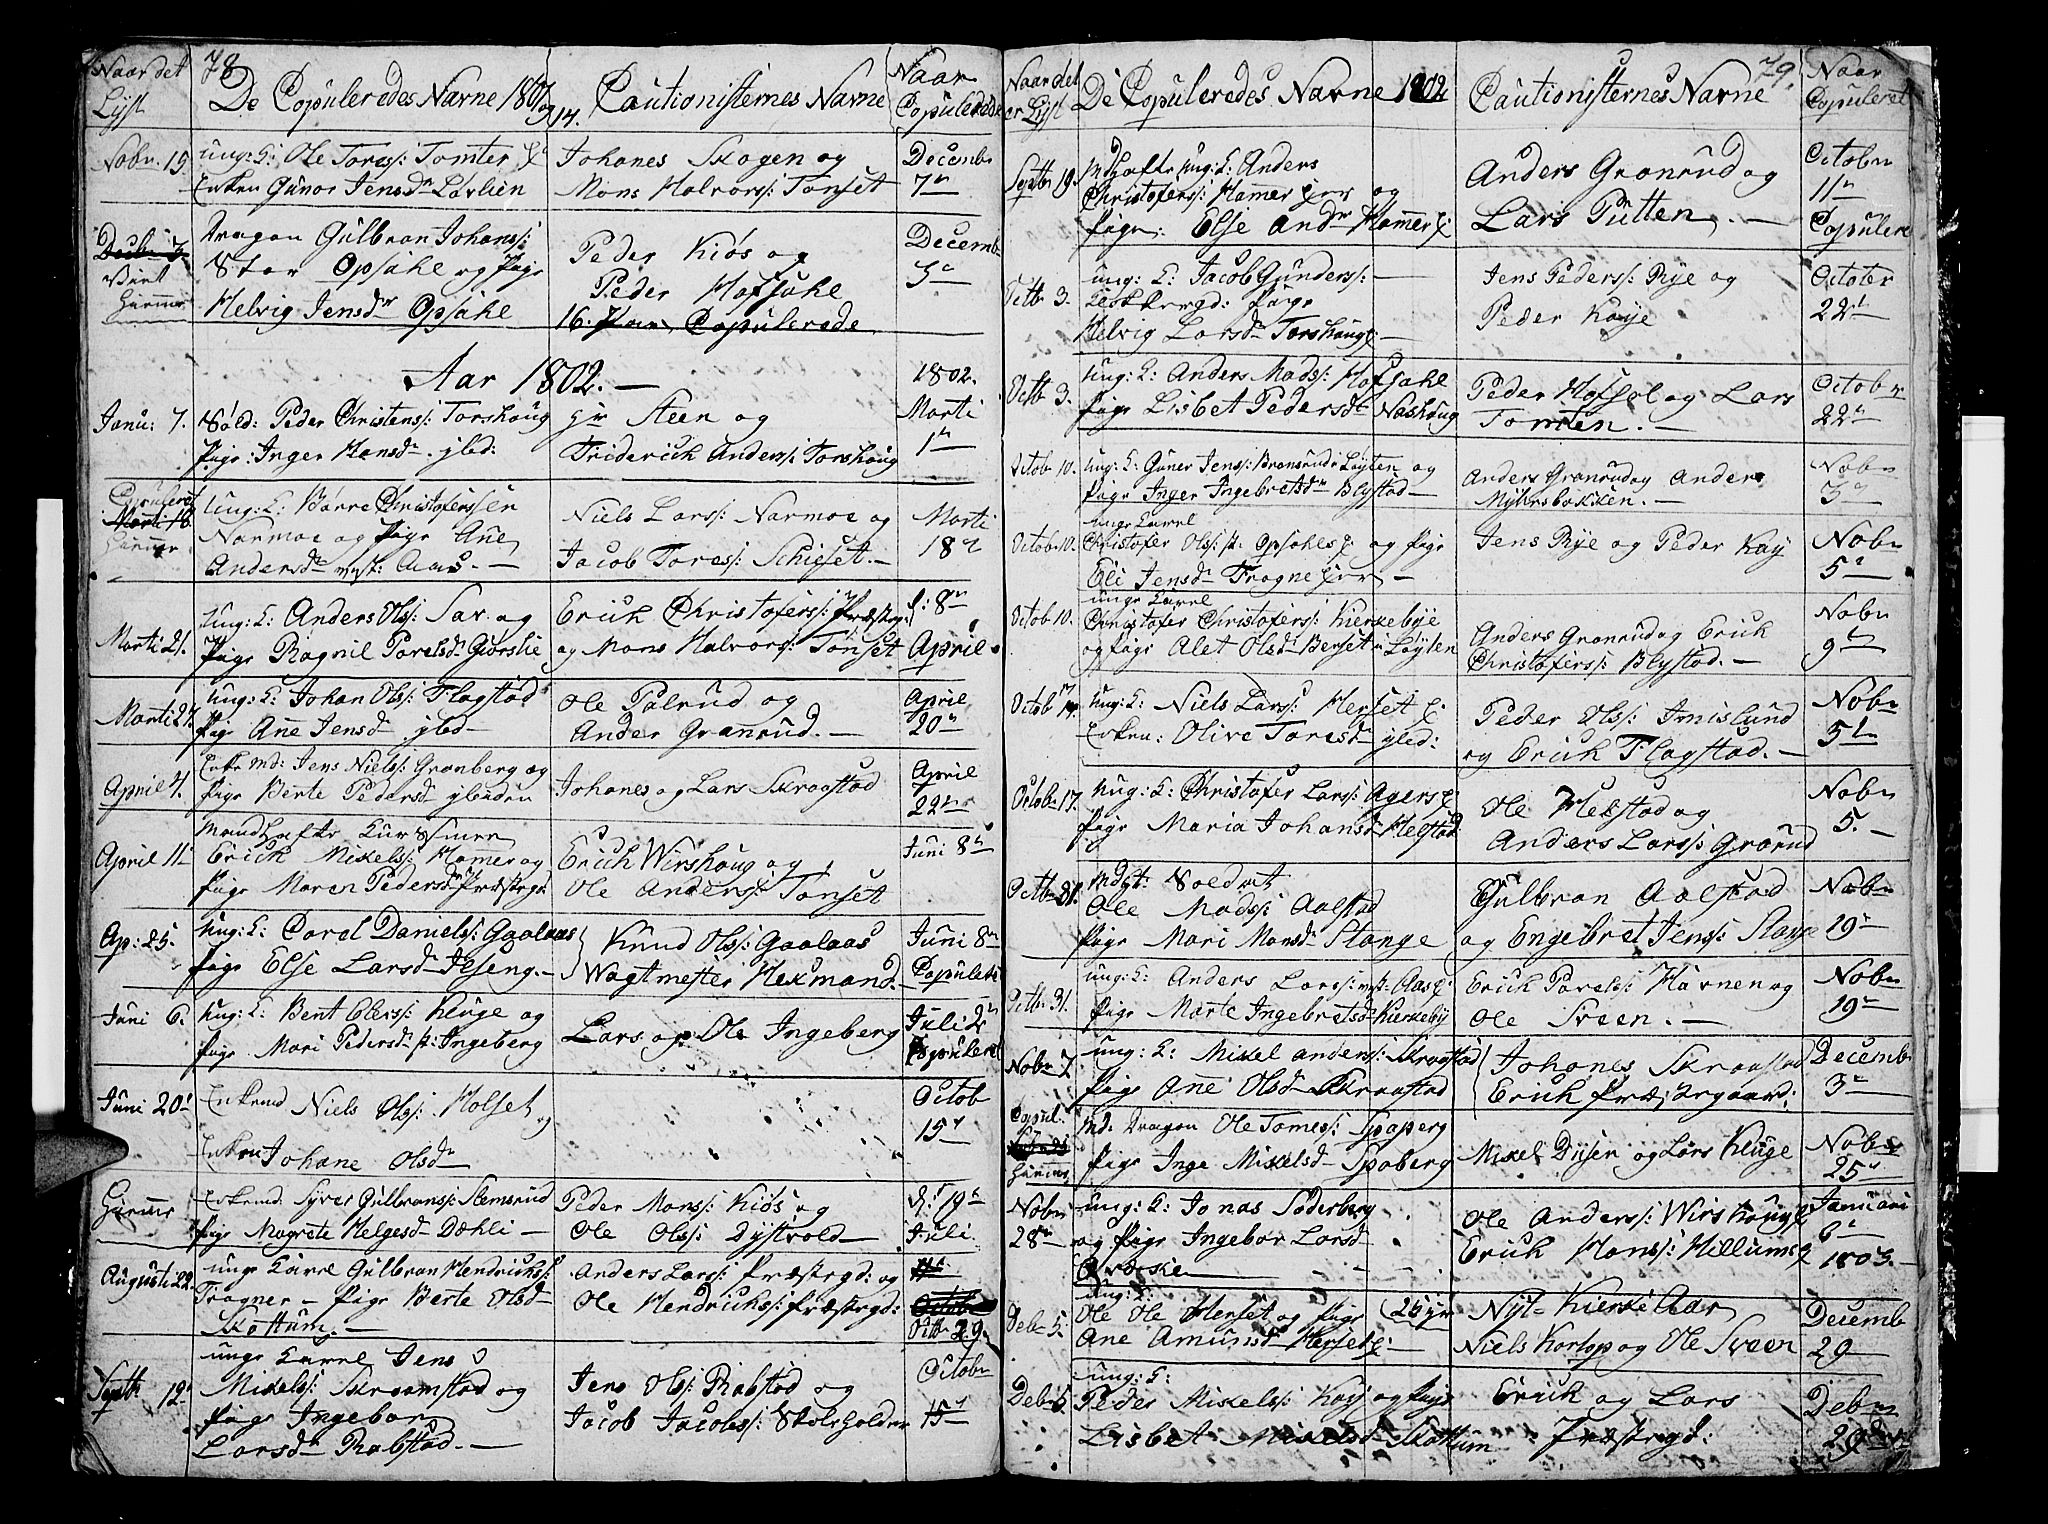 78
Naar det
Lyst
De Copuleredes Navne 1801/2
14.
Cautionisternes Navne
Naar
Copulerede
Nobr. 15.
ung: K: Ole Tores: Tomter
Enken Gunor Jensdr Lövlien
Johanes Skogen og
Mons Halvors: Tonset
Decembr
7de
Dragon Gulbran Johans:
Stor Opsahl og pige
Helvig Jensdr Opsahl
Peder Kiös og
Peder Hofsahl
16. Par Copulerede
Decemb
3
Aar 1802.
1802.
Janu: 7.
Sold: Peder Christens: Torshoug
pige: Inger Hansdr ibid:
Hr Steen og
Friderich Anders: Torshoug
Marti
1
Copuleret
Marti 16.
ung: K: Börre Christoferssen
Narmoe og pige Ane
Andersdr
Niels Lars: Narmoe og
Jacob Tores: Schieset
Marti
18
Marti 21.
ung: K: Anders Ols: Sav og
pige Ragnil Povelsdr Giörslie
Erich Christofers: Præstegr:
og Mons Halvors: Tonset
d: 8de
April
Marti 27.
ung: K: Johan Ols: Flagstad
pige Ane Jensdr ibid
Ole Palrud og
Ander Granrud.
April
20
April 4.
Enke Md: Jens Niels: Granberg og
pige Berte Pedersdr ibiden
Johanes og Lars Skraastad
April
22
April 11
Mandhafte Kurasmen
Erick Mikels: Hamer og
pige Maren Pedersdr Præstegr:
Erich Wirshoug og
Ole Anders: Tonset
Juni 8
Ap: 25.
ung: K: Corel Daniels: Gaalaas
pige Else Larsdr Ilseng.
Knud Ols: Gaalaas
Wagtmester Hexmand
Juni 8
Copulert
Juni 6.
ung: K: Bent Olers: Kluge og
pige Mari Pedersdr Ingeberg
Lars og Ole Ingeberg
Juli 2
Copuleret
Juni 20
Enkemd Niels Ols: Holset
og
Enken Johane Olsdr
Octob
15
Enkemd. Syver Gulbrans: Slemsrud
pige Magrete Helgesd Dæhli
Peder Mons: Kiös og
Ole Ols: Dystvold
d: 19
Juli
Augusti 22.
unge Karel Gulbran Hendricks:
Tragner pige Berte Olsd
Skottum.
Anders Lars: Præstegd: og
Ole Hendricks: Præstegd:
Octb 29.
Septb 12
unge Karel Jens
Mikels: Skraamstad og
pige Ingebor
Larsdr Rabstad.
Jens Ols: Rabstad og
Jacob Jacobs: Stoleholder
Octobr
15
79.
Naar det
er Lyst
De Copuleredes Navne 1802
Cautionisternes Navne
Naar
Copuleret
Septbr 19.
Mdhafte ung: K: Anders
Christofers: Hamer og
pigen: Else Andr Hamer
Anders Granrud og
Lars Putten.
Octobr
11
Copulere
Octbr 3.
ung: K: Jacob Gunders:
pige
Helvig Larsdr Torshoug
Jens Peders: Rye og
Peder Kaye
October
22
Octb 3.
ung: K: Anders Mads: Hofsahl
pige Lisbet Pedersdr Nashoug
Peder Hofsal og Lars
Tomten.
Octobr
22
Octob 10.
ung: K: Guner Jens: Bronsrud i Löyten og
pige Inger Ingebretsdr Blystad
Anders Granrud og Ander
Myhrsbakken.
Nobr
3
Octob 10.
unge Karel
Christofer Ols: Opsahl og pige
Eli Jensdr Tragne
Jens Rye og Peder Kay
Nobr
5
Octob 10.
unge Karel
Christofer Christofers: Kierkebye
og pige Alet Olsdr Berset i Löyten
Anders Granrud og Erick
Christofers: Blystad.
Nobr
9
Octob 17
ung: K: Niels Lars: Herset
Enken: Olive Toresdr ibid:
Peder Ols: Imislund
og Erick Flagstad.
Nobr
5
Octobr 17.
ung: K: Christofer Lars: Ager
pige Maria Johansd Helstad
Ole Helstad og
Anders Lars: Grorud
Nobr
5.
Octbr 31.
Soldat
Ole Mads: Aalstad
pige Mari Monsdr Stange
Gulbran Aalstad
og Engebret Jens: Stange
Nobr
19
Octbr 31.
ung: K: Anders Lars: Aas
pige Marte Ingebretsd Kierkeby
Erick Povels: Havnen og
Ole Sveen.
Nobr
19
Nobr 7
ung: K: Mikel anders: Skraastad
pige Ane Olsd Skraastad
Johanes Skraastad
Erick Præstegaard:
Decemb
3
Copul.
Md. Dragon Ole Tomes: Spaberg
pige Inge Mikelsd Spaberg
Mikel Disen og Lars Kluge
Nobr
25
Nobr
28
ung: K: Jonas Söderberg
og pige Ingebor Larsd
Ole Anders: Wirshoug
Erick Hans: Hillum
Januari
6
1803.
Debr 5.
ung: K:
Ole Ole Herset og pige
Ane Amundsd Herset
Nyl- Kierke Aar
Niels Kortop og Ole Sveen
Decemb
29
Debr 5.
ung: K:
Peder Mikels: Kay og pige
Lisbet Mikelsd Skottum
Erick og Lars
Præstegd:
Debr
29